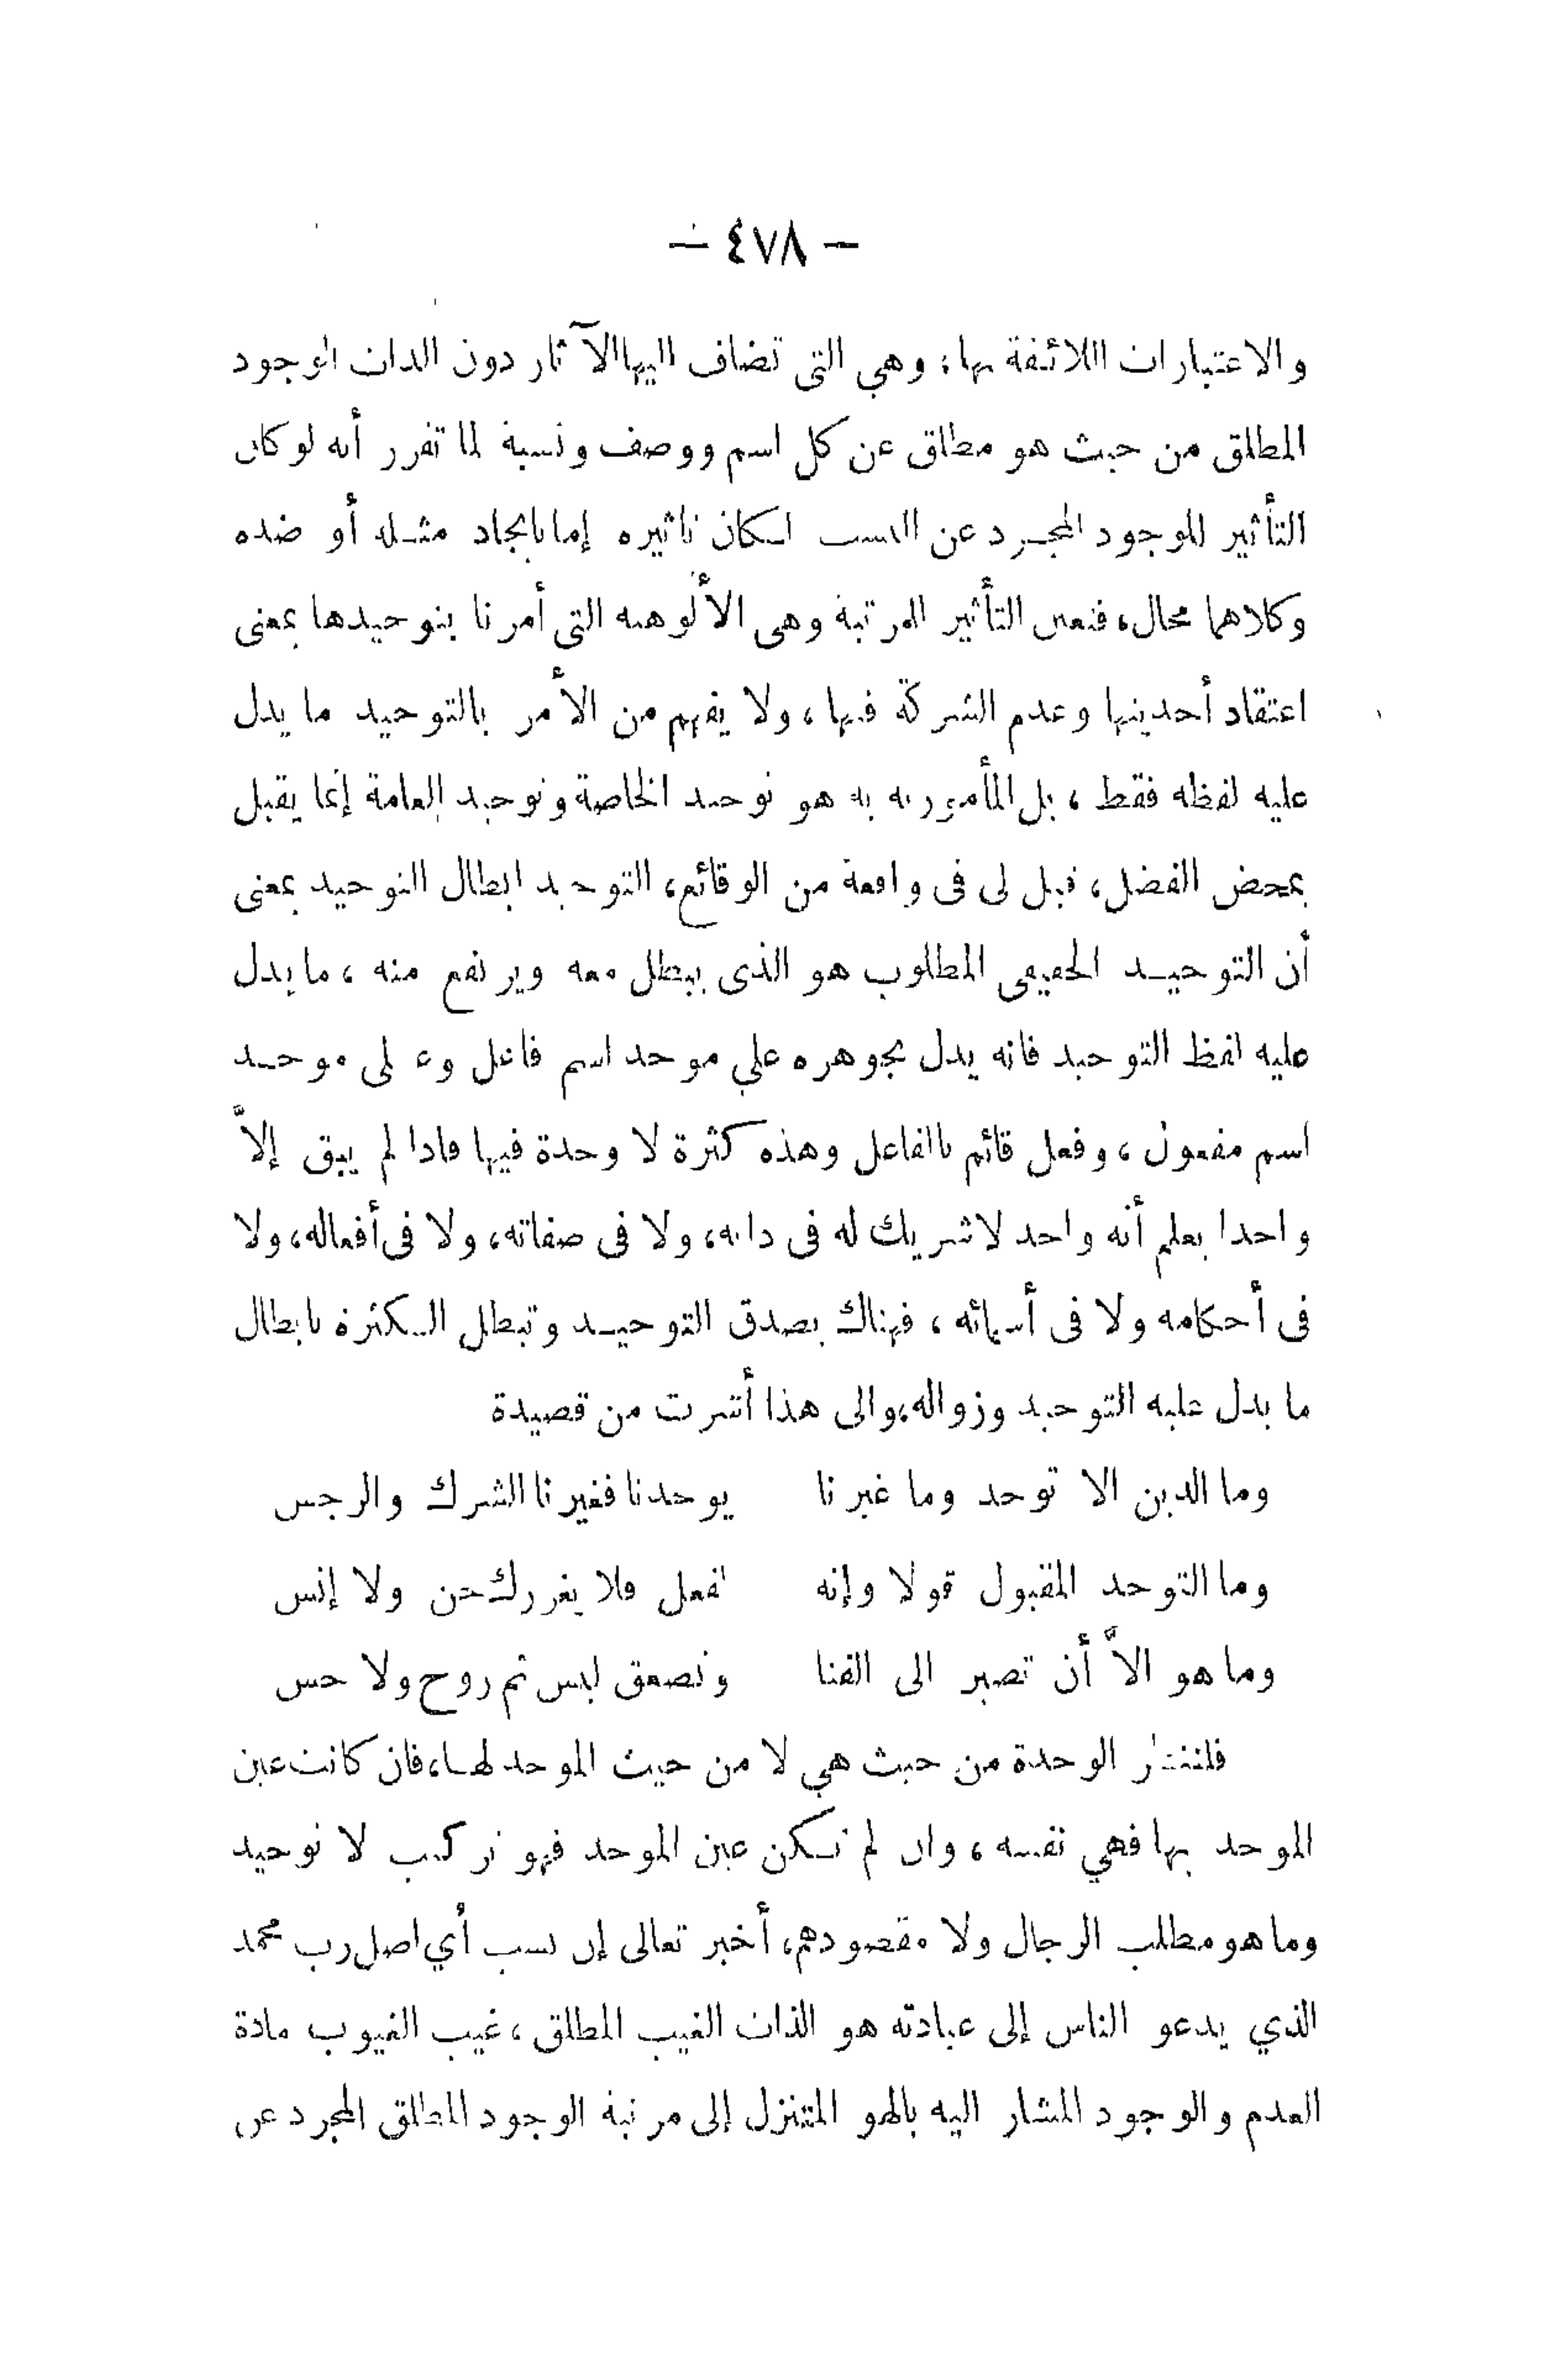 — ٤٧٨ —
والاعتبارات اللائقة بها؛ وهي التى تضاف اليها الآثار دون الذات الوجود
المطلق من حيث هو مطلق عن كل اسم ووصف ونسبة لما تقرر أنه لو كان
التأثير للوجود المجرد عن النسب لكان تأثيره إما بايجاد مثله أو ضده
وكلاهما محال، فتعين التأثير للمرتبة وهى الألوهية التى أمرنا بتوحيدها بمعنى
اعتقاد أحديتها وعدم الشركة فيها، ولا يفهم من الأمر بالتوحيد ما يدل
عليه لفظه فقط، بل المأمور به به هو توحيد الخاصة وتوحيد العامة إنما يقبل
بمحض الفضل، قيل لى فى واقعة من الوقائع، التوحيد ابطال التوحيد بمعنى
أن التوحيد الحقيقى المطلوب هو الذى يبطل معه ويرتفع منه، ما يدل
عليه لفظ التوحيد فانه يدل بجوهره علي موحد اسم فاعل وعلى موحد
اسم مفعول، وفعل قائم بالفاعل وهذه كثرة لا وحدة فيها فاذا لم يبق إلاّ
واحدا يعلم أنه واحد لا شريك له فى ذاته، ولا فى صفاته، ولا فى أفعاله، ولا
فى أحكامه ولا فى أسمائه، فهناك يصدق التوحيد وتبطل الكثرة بابطال
ما يدل عليه التوحيد وزواله، والى هذا أشرت من قصيدة
وما الدين الا توحد وما غيرنا يوحدنا فغيرنا الشرك والرجس
وما التوحد المقبول قولا وإنه لفعل فلا يغررك جن ولا إنس
وما هو الاّ أن تصير الى الفنا وتصعق ليس ثم روح ولا حس
فلننظر الوحدة من حيث هي لا من حيث الموحد لها، فان كانت عين
الموحد بها فهي نفسه، وان لم تكن عين الموحد فهو تركيب لا توحيد
وما هو مطلب الرجال ولا مقصودهم، أخبر تعالى إن نسب أي اصل رب محمد
الذي يدعو الناس إلى عبادته هو الذات الغيب المطلق، غيب الغيوب مادة
العدم والوجود المشار اليه بالهو المتنزل إلى مرتبة الوجود المطلق المجرد عن